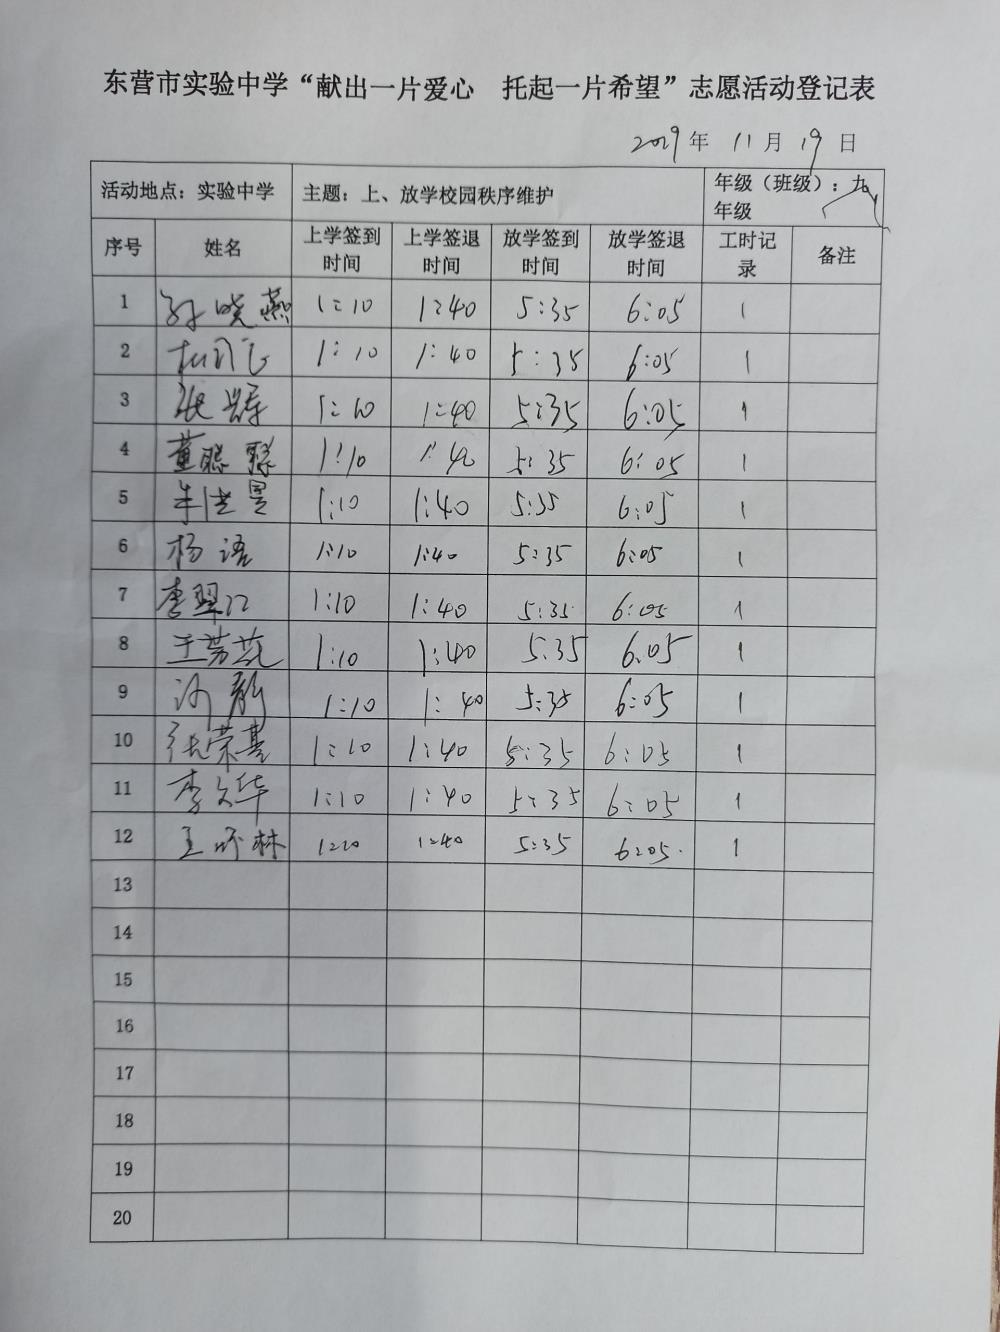 东营市实验中学“献出一片爱心 托起一片希望”志愿活动登记表
2019年 11月 19日
活动地点：实验中学 主题：上、放学校园秩序维护 年级（班级）：九年级
序号 姓名 上学签到时间 上学签退时间 放学签到时间 放学签退时间 工时记录 备注
1 孙晓燕 1:10 1:40 5:35 6:05 1
2 1:10 1:40 5:35 6:05 1
3 张 1:10 1:40 5:35 6:05 1
4 董聪聪 1:10 1:40 5:35 6:05 1
5 1:10 1:40 5:35 6:05 1
6 杨语 1:10 1:40 5:35 6:05 1
7 李翠江 1:10 1:40 5:35 6:05 1
8 王芳蕊 1:10 1:40 5:35 6.05 1
9 1:10 1:40 5:35 6:05 1
10 张荣基 1:10 1:40 5:35 6:05 1
11 李文华 1:10 1:40 5:35 6:05 1
12 王 林 1:10 1:40 5:35 6:05 1
13
14
15
16
17
18
19
20